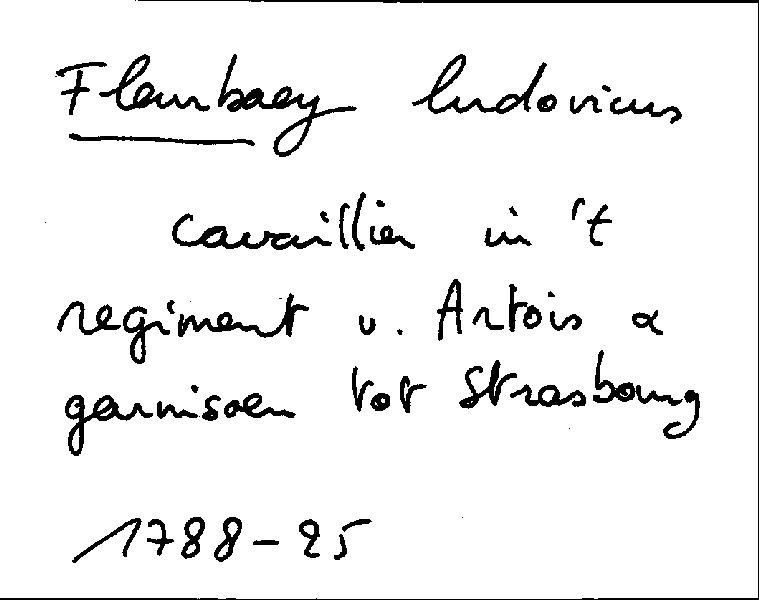 Fleurbaey ludovicus
cavaillier in 't
regiment v. Artois &
garnisoen tot Strasbourg
1788-25